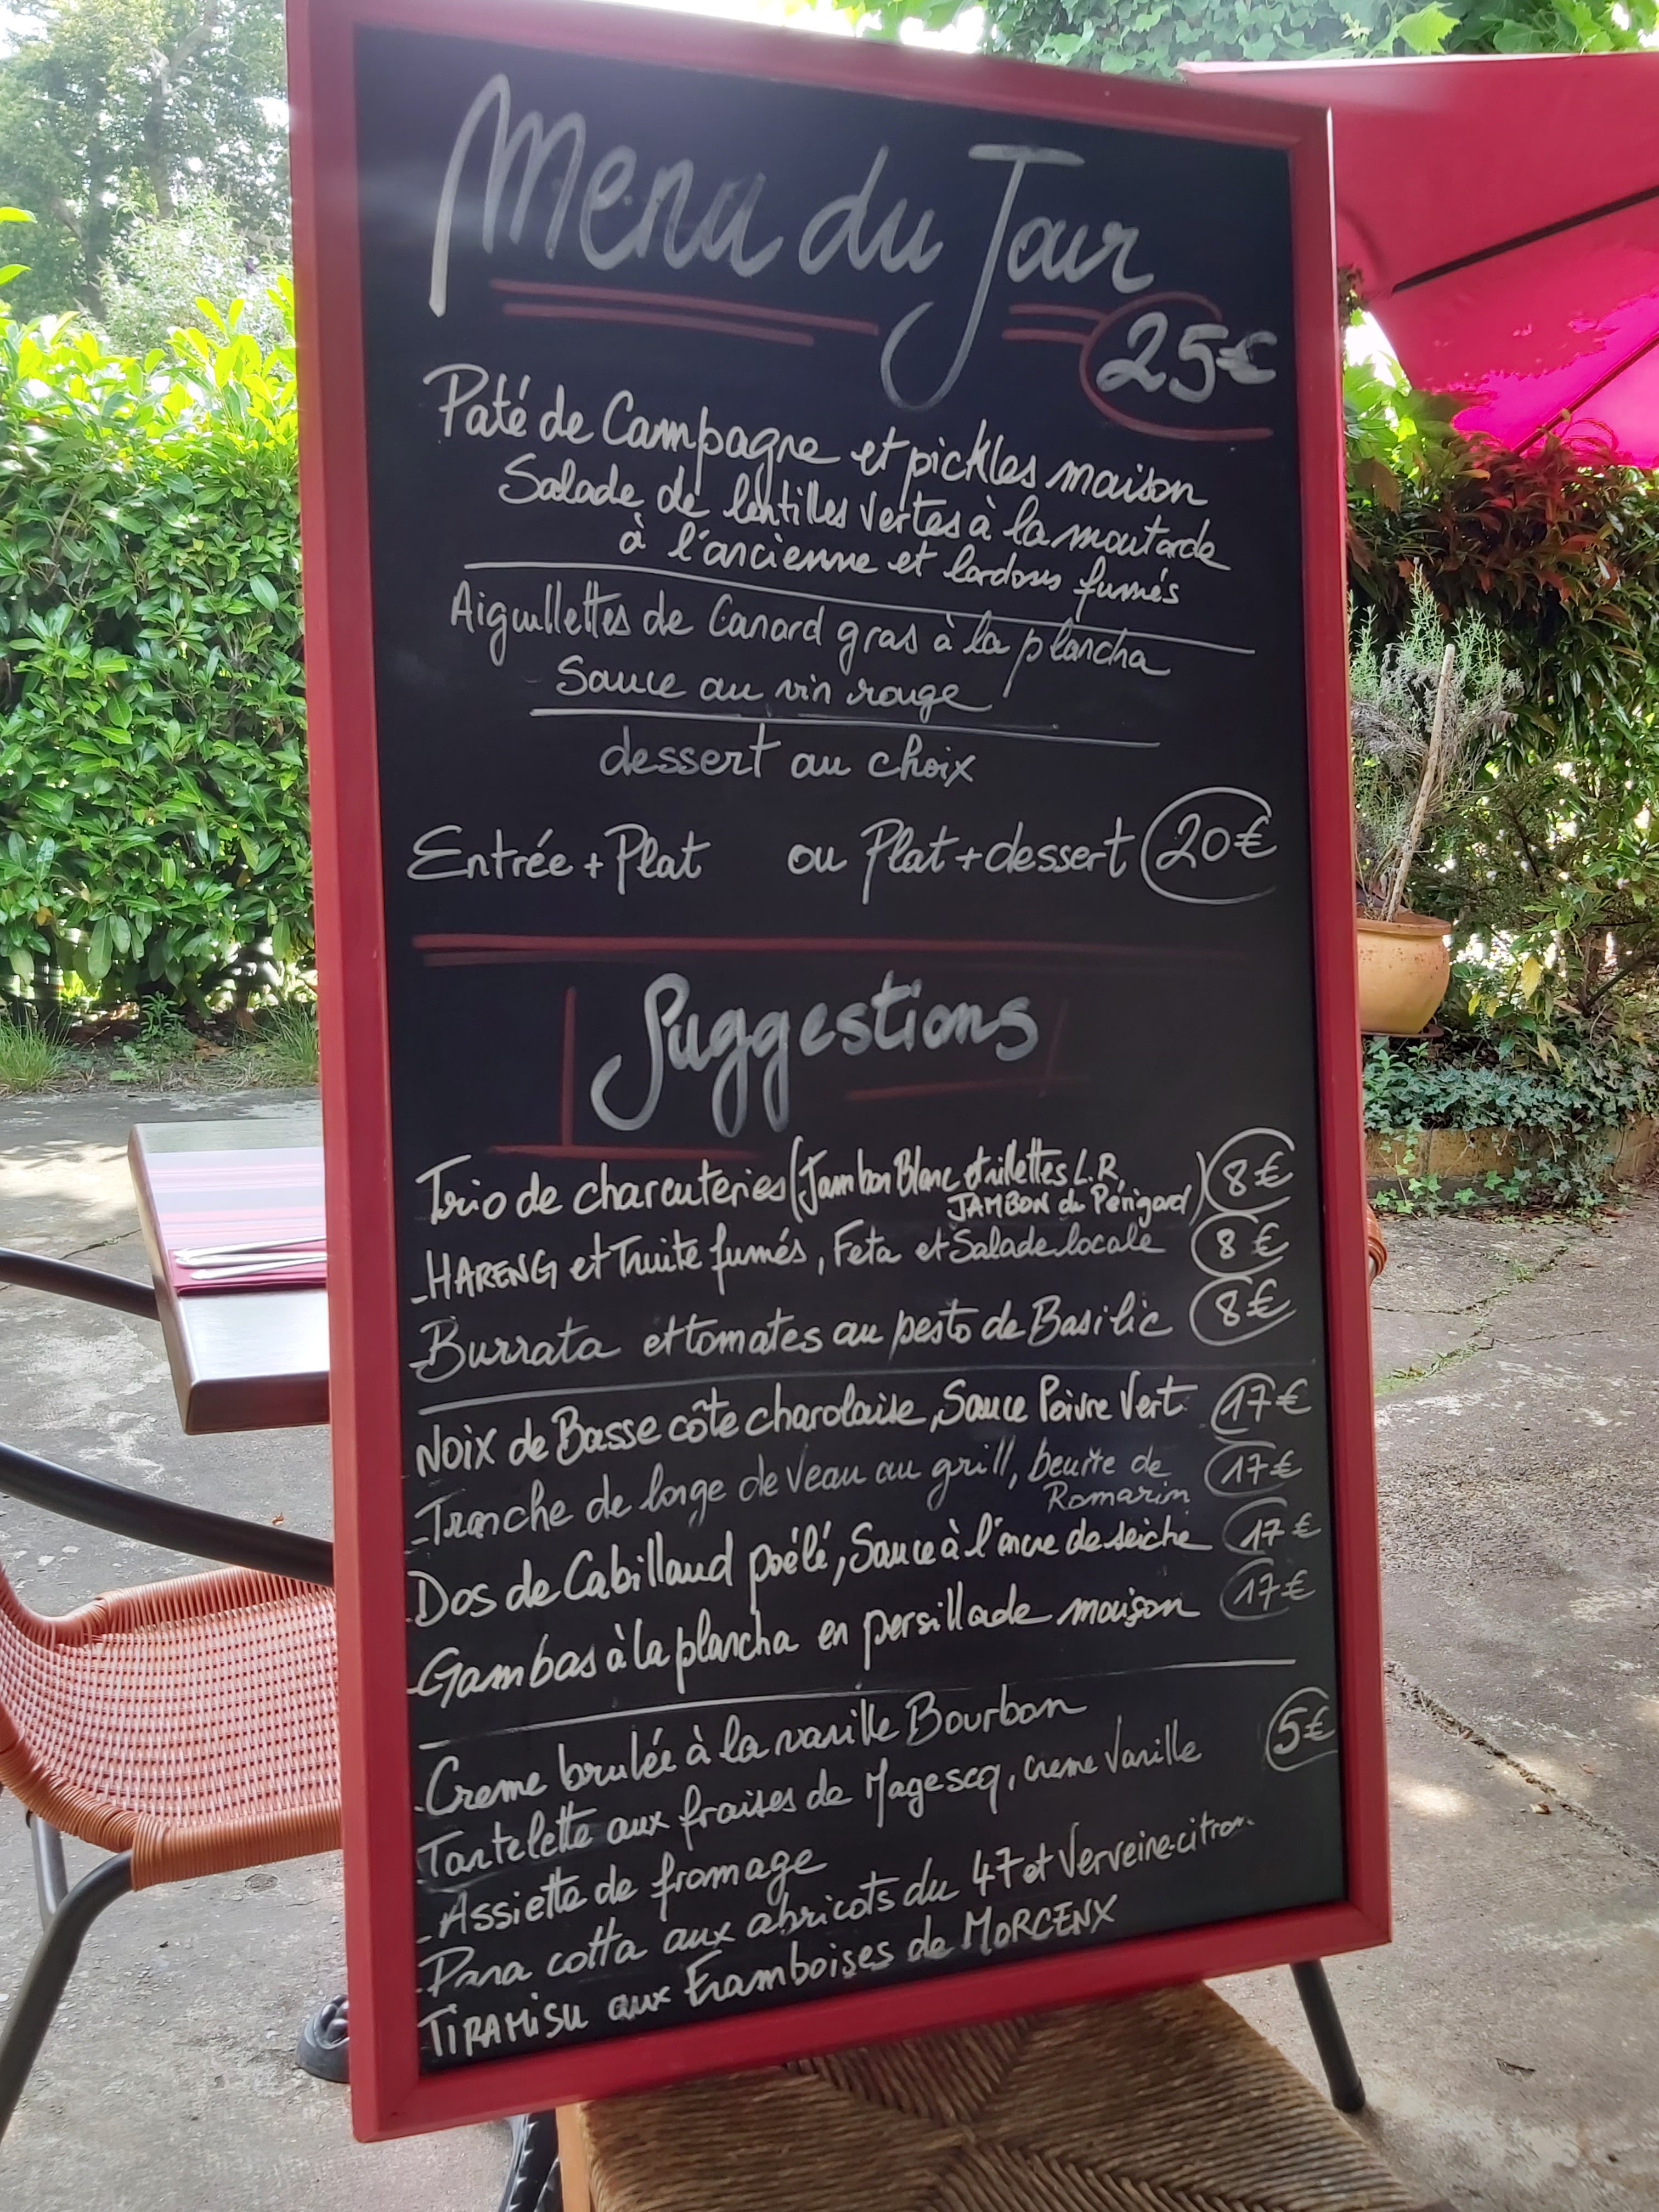 Menu du Jour
25€
Paté de Campagne et pickles maison
Salade de lentilles vertes à la moutarde
à l'ancienne et lardons fumés
Aiguillettes de Canard gras à la plancha
Sauce au vin rouge
dessert au choix
Entrée + Plat ou Plat + dessert 20€
Suggestions
Trio de charcuteries (Jambon Blanc et rillettes L.R, 8€
JAMBON du Périgord)
- HARENG et Truite fumés, Feta et Salade locale 8€
- Burrata et tomates au pesto de Basilic 8€
- NOIX de Basse côte charolaise, Sauce Poivre Vert 17€
- Tranche de longe de Veau au grill, beurre de 17€
Romarin
- Dos de Cabillaud poêlé, Sauce à l'encre de seiche 17€
- Gambas à la plancha en persillade maison 17€
- Creme brulée à la vanille Bourbon 5€
- Tartelette aux fraises de Magescq, creme Vanille
- Assiette de fromage
- Pana cotta aux abricots du 47 et Verveine-citron
- TIRAMISU aux Framboises de MORCENX